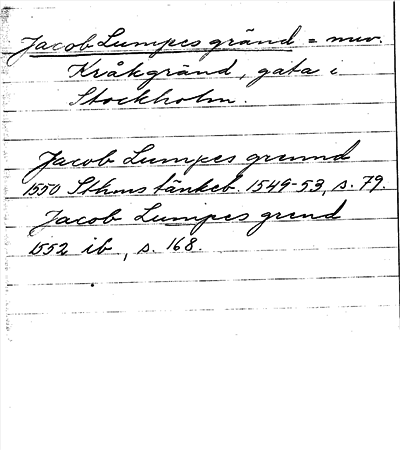 Jacob Lumpes gränd = nuv.
Kråkgränd, gata i
Stockholm.
Jacob Lumpes grennd
1550 Sthms tänkeb. 1549-53, s. 79.
Jacob Lumpes grend
1552 ib, s. 168.